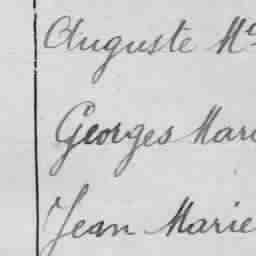 Auguste Me
Georges Mari
Jean Marie